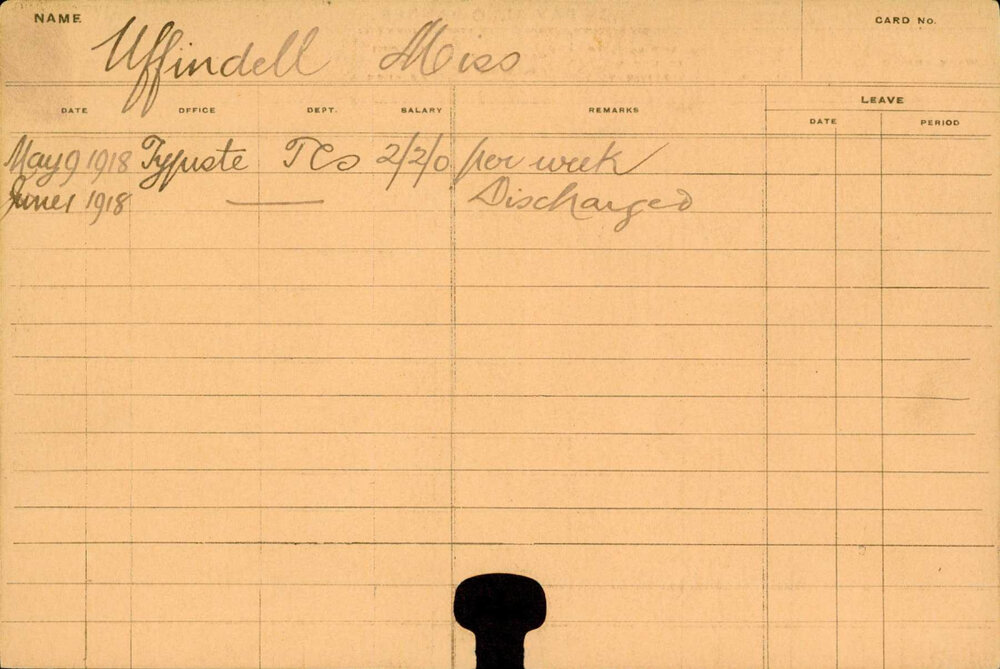 NAME
Uffindell Miss
CARD No.
DATE OFFICE DEPT. SALARY REMARKS LEAVE
DATE PERIOD
May 9 1918 Typiste TCs 2/2/0 per week
June 1 1918 — Discharged